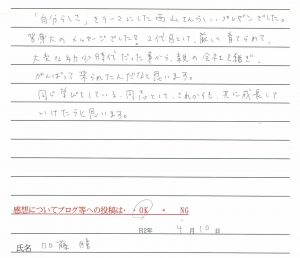 「自分らしく」をテーマにした西山さんらしい、プレゼンでした。
等身大のメッセージでした。2代目として、厳しく育てられて、
大変な時代だった事から、親の会社を継ぎ、
がんばって来られたんだなと思います。
同じ学びをしている、同志として、これからも、共に成長して
いけたらと思います。
感想についてブログ等への投稿は・・OK ・ NG
H2年 4月10日
氏名 加藤 晴